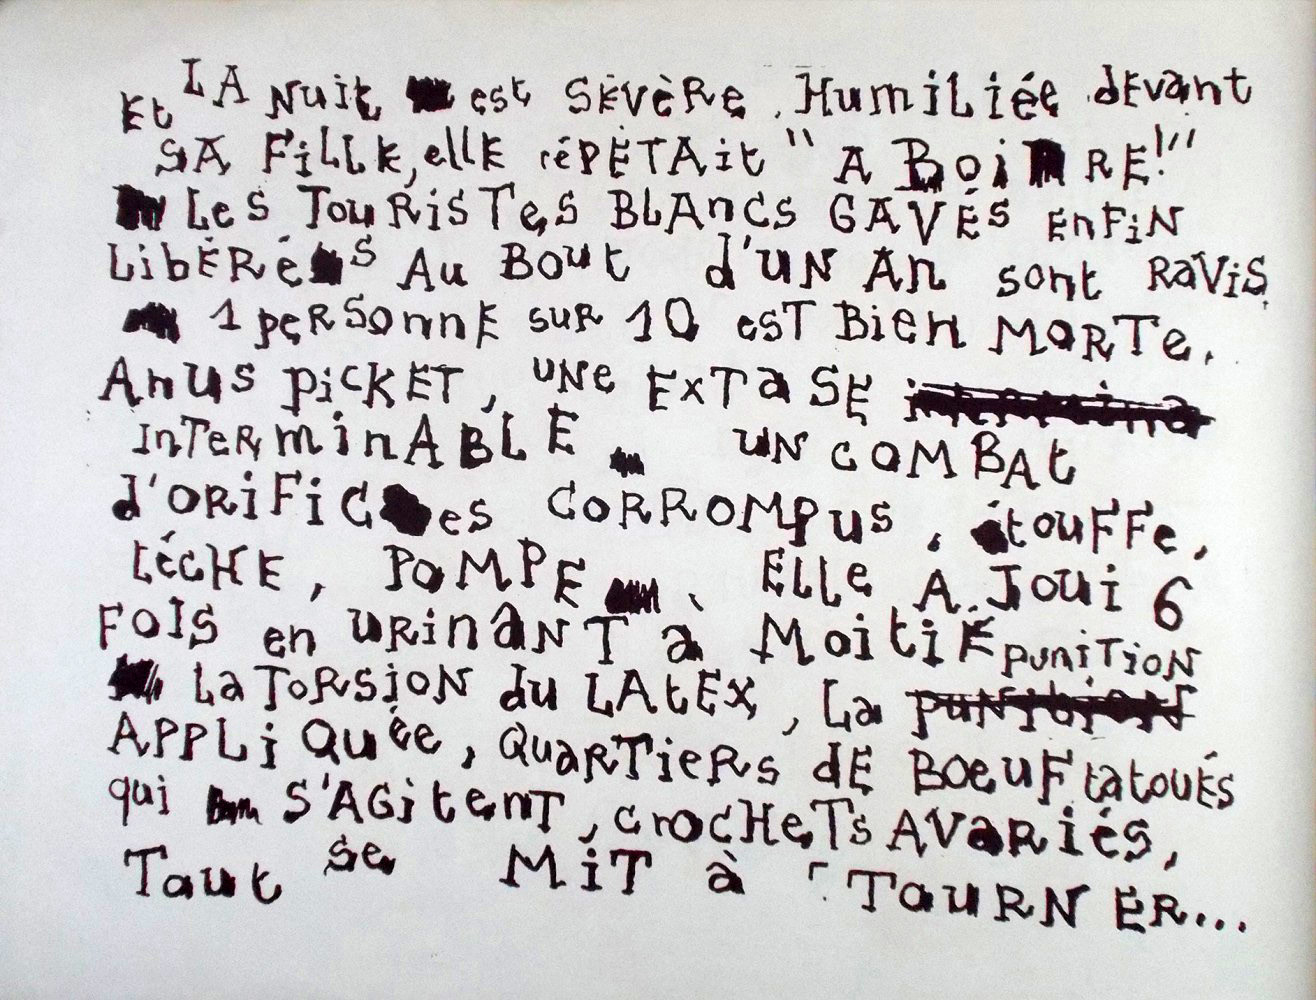 Et LA Nuit est SÉVèRe. HumiLiée dEvant
SA FiLLE, ellE rÉPÉTAit "A BoiRE!"
LeS TouRiSTeS BLAncS GAVÉS EnFiN
LibÉRéS Au Bout d'uN An sont RaViS
1 peRSonnE suR 10 esT BiEn MoRTe.
AnuS PicKET, uNe ExTaSE
InTeRminABLE un coMBAt
d'ORiFiCes CoRRoMPuS, étouFFe,
LéCHE, PoMPE. ELLe A Joui 6
FoIS en uRinanT a MoitiÉ puniTioN
La ToRSioN du LAtEx, La puNitioN
APPLiQuée, QuaRTieRs dE BoeuF tatouÉs
qui S'AGitenT, crocHeTs AVaRiéS,
Taut Se MiT à TauRNER...